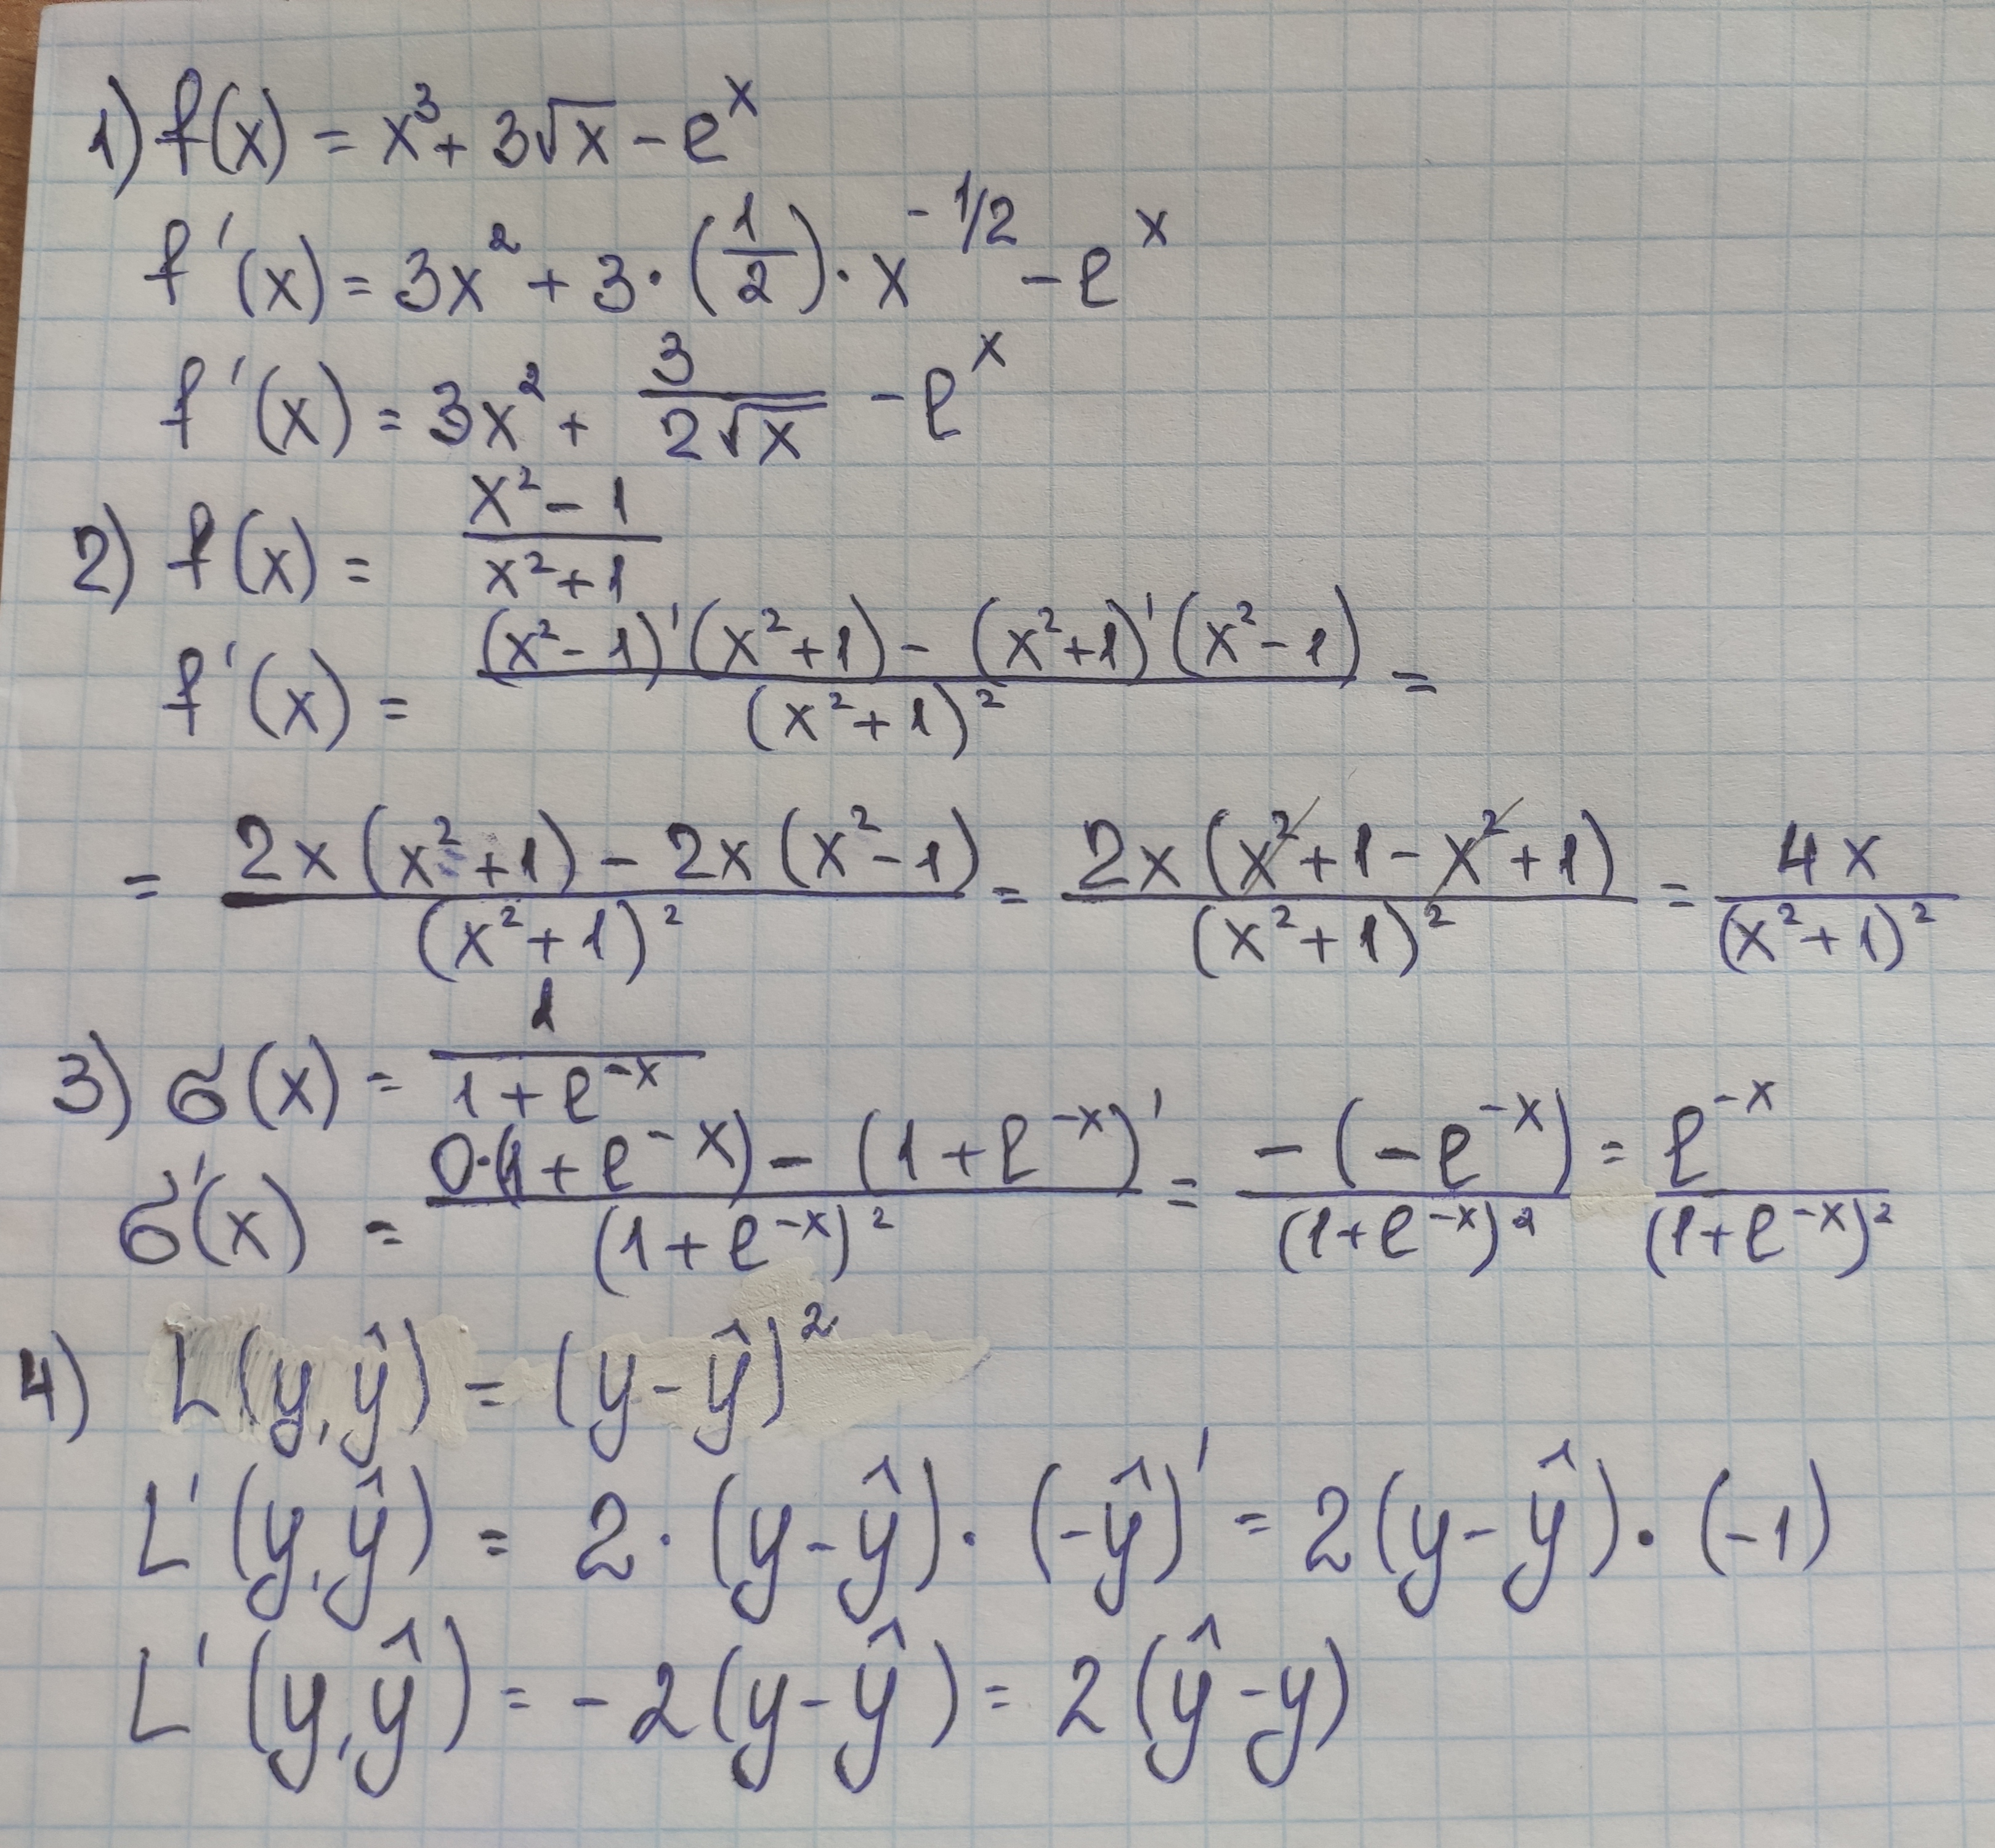 1) f(x) = x³ + 3√x - eˣ
f'(x) = 3x² + 3 · (1/2) · x^(-1/2) - eˣ
f'(x) = 3x² + 3/(2√x) - eˣ
2) f(x) = (x² - 1)/(x² + 1)
f'(x) = ((x² - 1)'(x² + 1) - (x² + 1)'(x² - 1))/(x² + 1)² =
= (2x(x² + 1) - 2x(x² - 1))/(x² + 1)² = (2x(x² + 1 - x² + 1))/(x² + 1)² = 4x/(x² + 1)²
3) σ(x) = 1/(1 + e^(-x))
σ'(x) = (0·(1 + e^(-x)) - (1 + e^(-x))')/(1 + e^(-x))² = -(-e^(-x))/(1 + e^(-x))² = e^(-x)/(1 + e^(-x))²
4) L(y, ŷ) = (y - ŷ)²
L'(y, ŷ) = 2 · (y - ŷ) · (-ŷ)' = 2(y - ŷ) · (-1)
L'(y, ŷ) = -2(y - ŷ) = 2(ŷ - y)